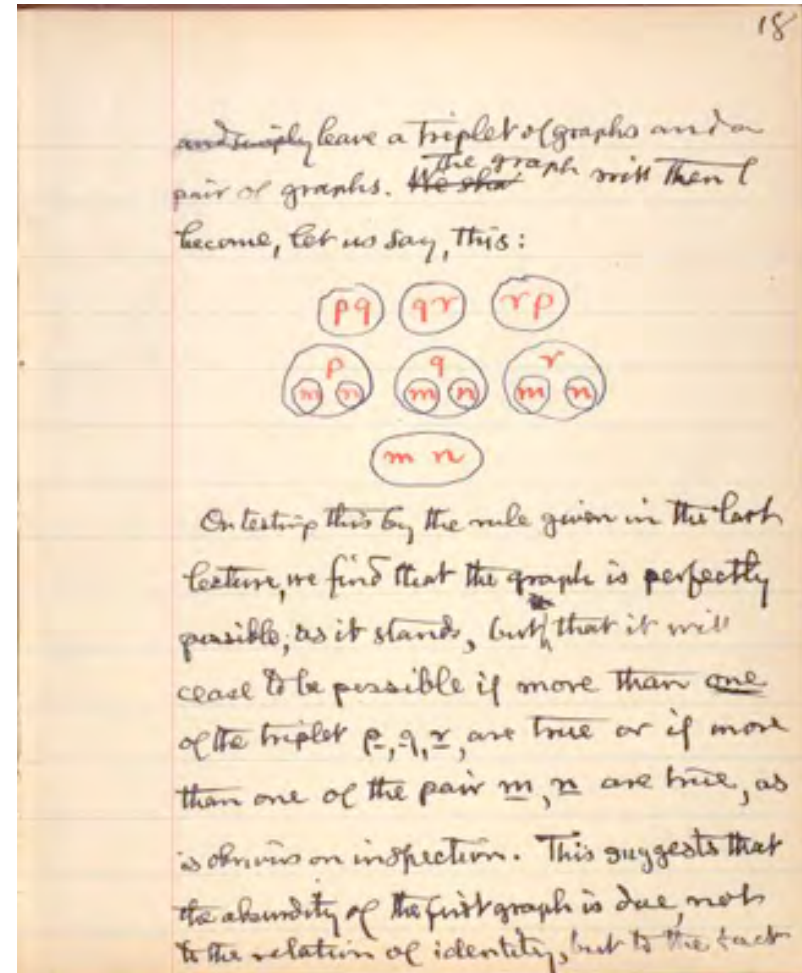 18
and simply leave a triplet of graphs and a
pair of graphs. We sha the graph will then
become, let us say, this:
pq qr rp
p q r
m n m n m n
m n
On testing this by the rule given in the last
lecture, we find that the graph is perfectly
possible, as it stands, but that it will
cease to be possible if more than one
of the triplet p, q, r, are true or if more
than one of the pair m, n are true, as
is obvious on inspection. This suggests that
the absurdity of the first graph is due, not
to the relation of identity, but to the fact